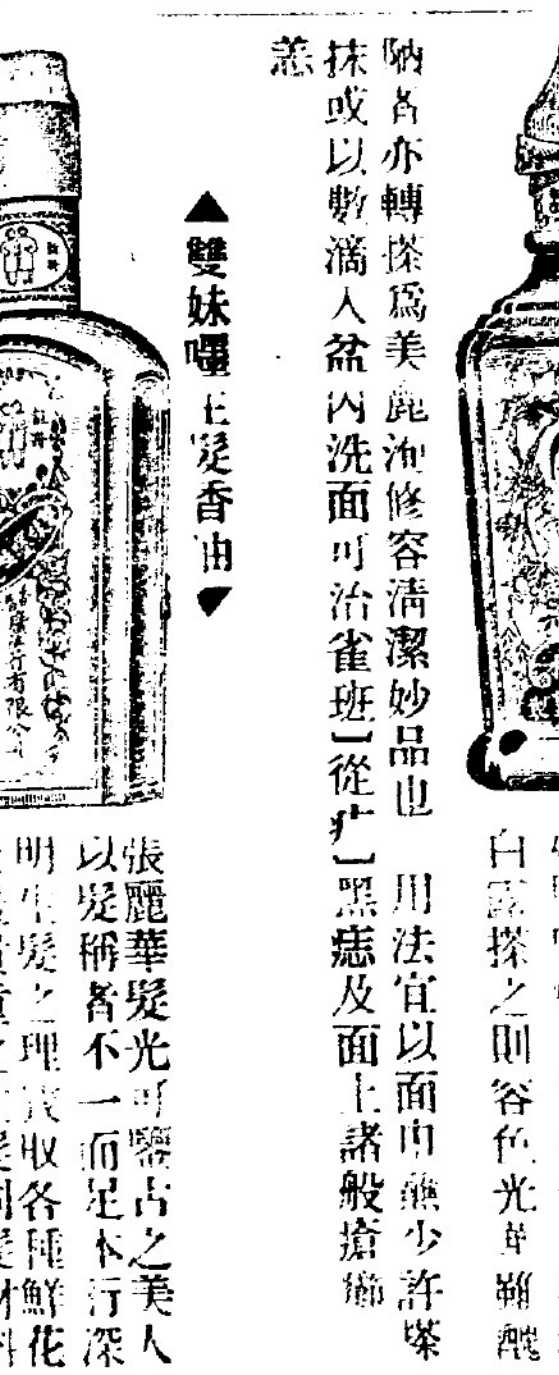 白露搽之則容色光華雖醜
陋者亦轉搽爲美麗洵修容清潔妙品也　用法宜以面巾蘸少許搽
抹或以數滴入盆內洗面可治雀班【從疒】黑痣及面上諸般瘡癤
恙
▲雙妹嚜生髮香油▼
張麗華髮光可鑒古之美人
以髮稱者不一而足本行深
明生髮之理故取各種鮮花
行有限公司